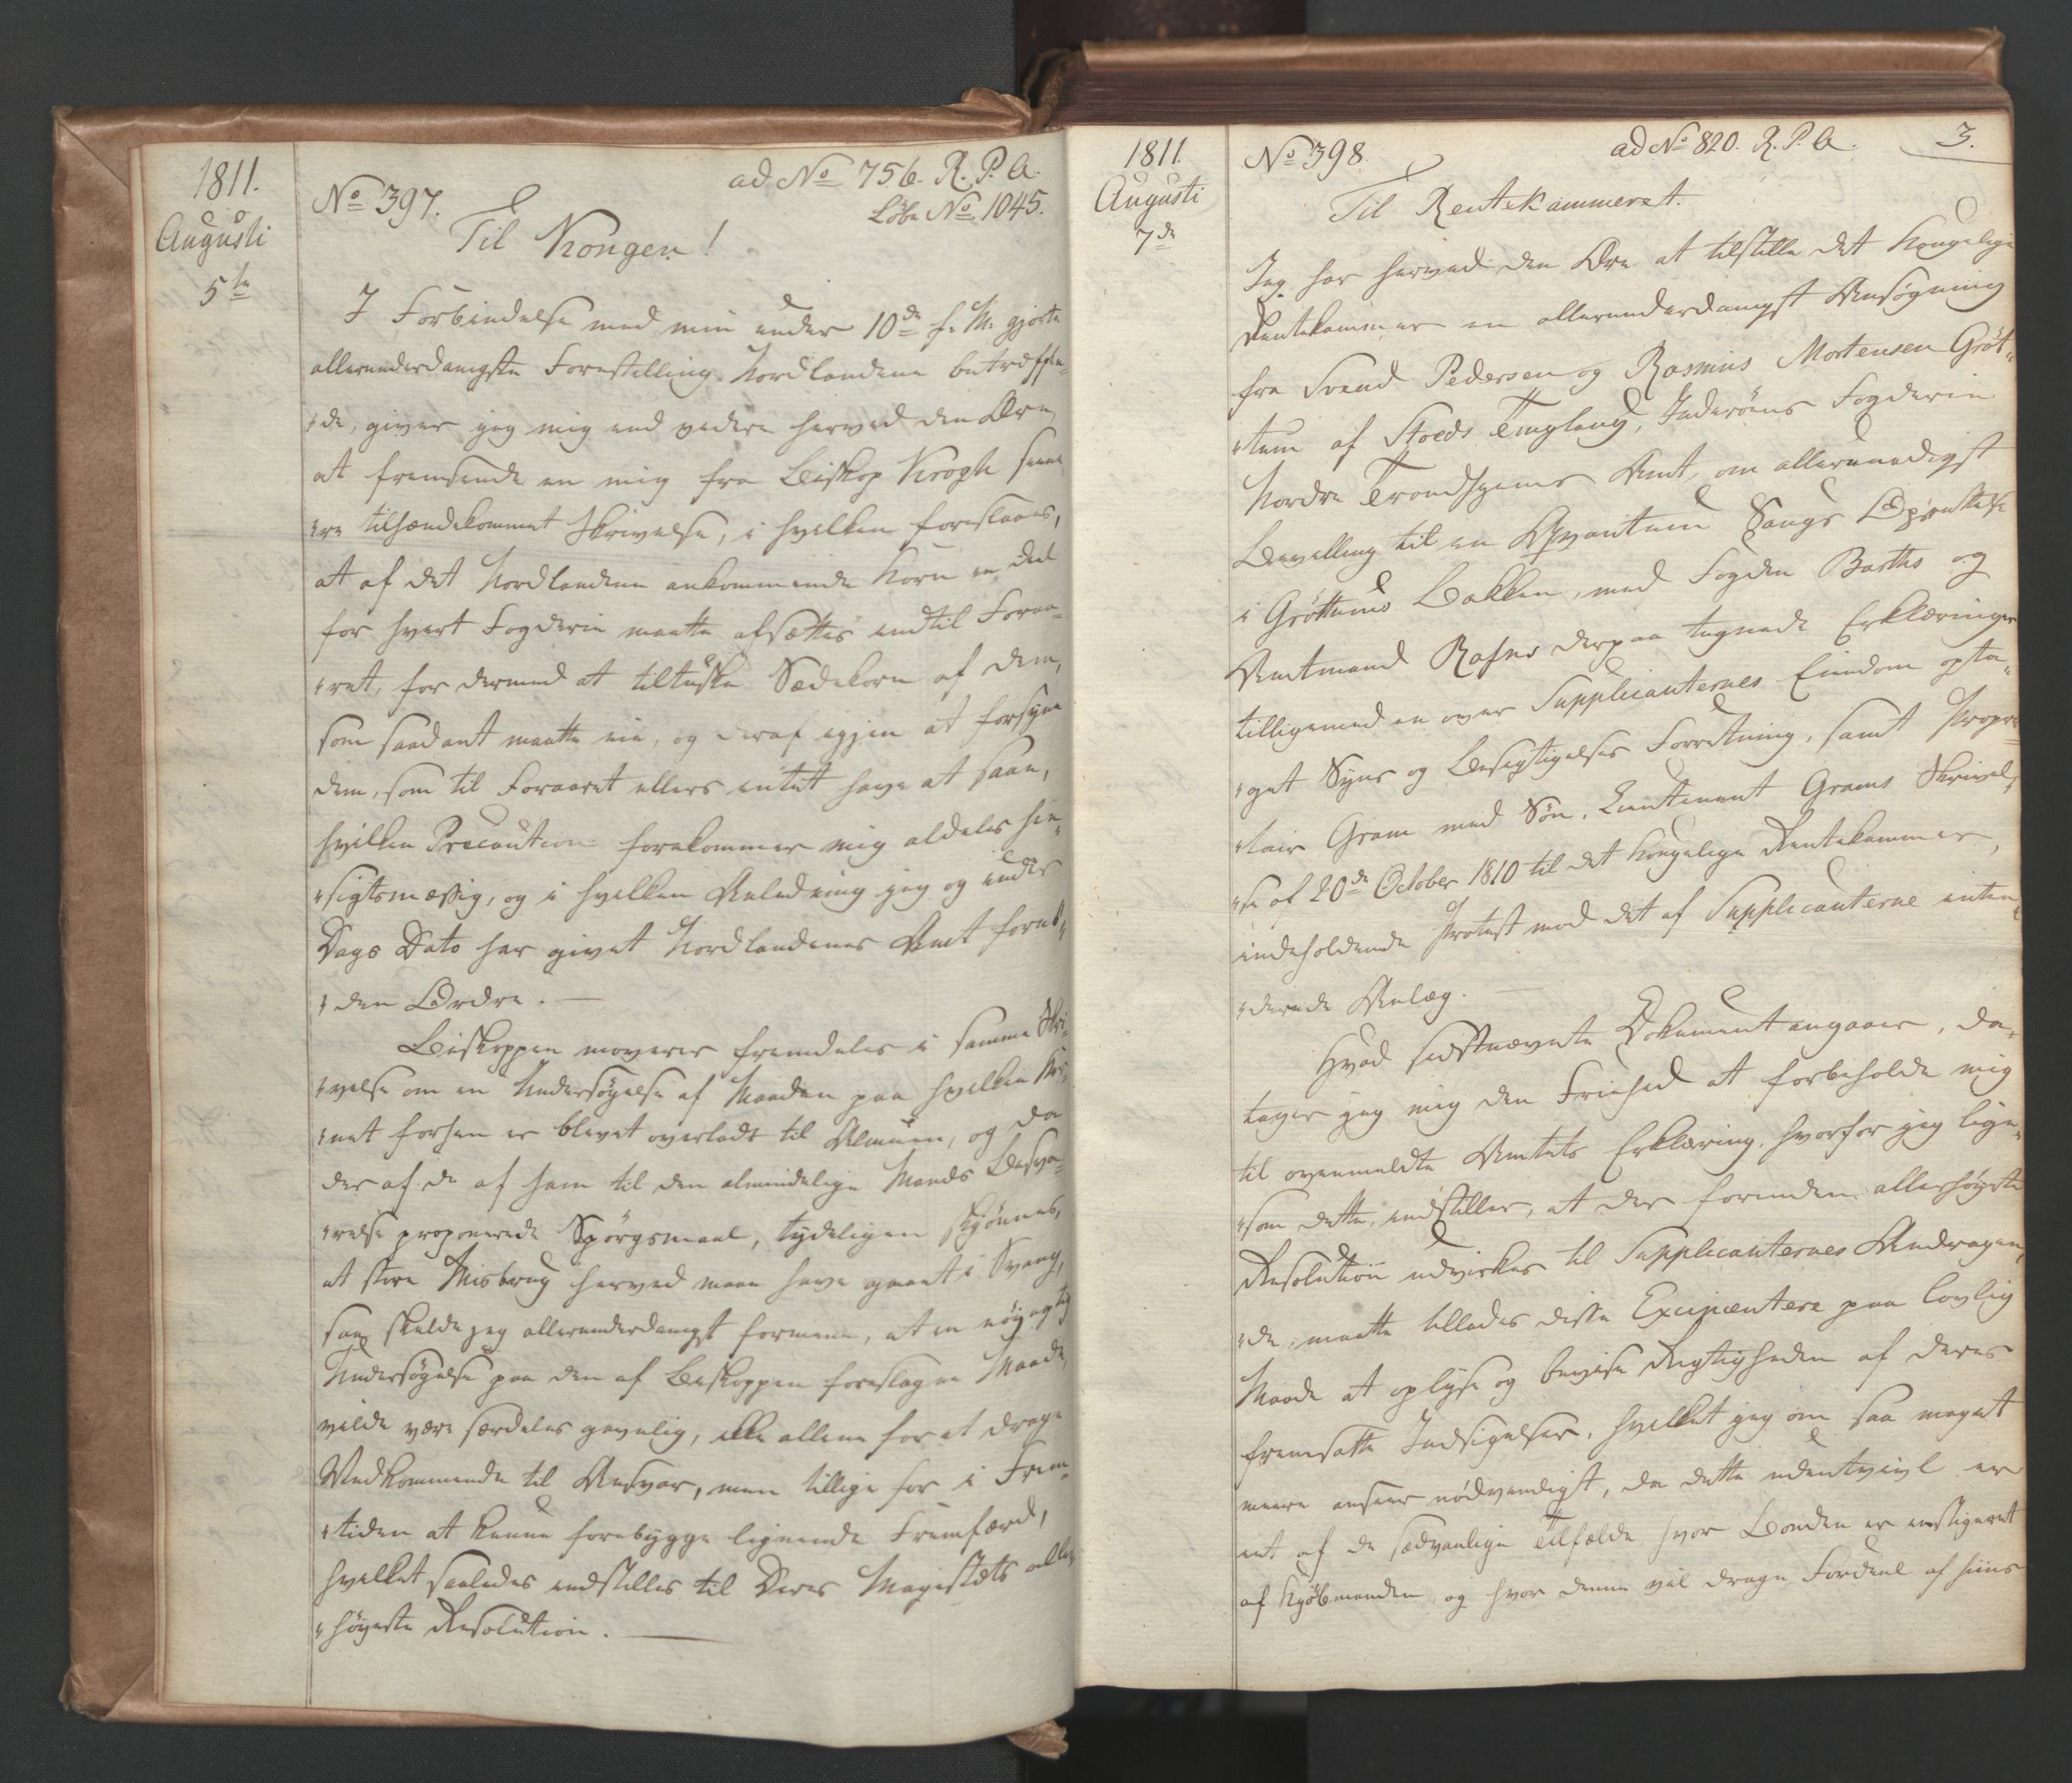 1811.
Augusti
5te
No 397.
ad No 756. R. P. A.
Løbe No 1045.
Til Kongen!
I Forbindelse med min under 10de f. M. gjorte
allerunderdanigste Forestilling Nordlandene betræffen-
"de, giver jeg mig end videre herved den Ære,
at fremsende en mig fra Biskop Krogh sene-
"re tilhændekommet Skrivelse, i hvilken foreslaaes,
at af det Nordlandene ankommende Korn en Deel
for hvert Fogderie maatte afsættes indtil Foraa-
"ret, for dermed at tiltuske Sædekorn af dem,
som saadant maatte eie, og deraf igjen at forsyne
dem, som til Foraaret ellers intet have at saae,
hvilken Precaution forekommer mig aldeles hen-
"sigtsmæssig, og i hvilken Anledning jeg og under
Dags Dato har givet Nordlandenes Amt fornö-
"den Ordre. —
Biskoppen moverer fremdeles i samme Skri-
"velse om en Undersøgelse af Maaden paa hvilken Kor-
"net forhen er blevet overladt til Almuen, og da
der af de af ham til den almindelige Mands Besva-
"relse proponerede Spørgsmaal, tydeligen skjønnes,
at store Misbrug herved maae have gaaet i Svang,
saa skulde jeg allerunderdanigst formene, at en nøyagtig
Undersøgelse paa den af Biskoppen foreslagne Maade,
vilde være særdeles gavnlig, ikke allene for at drage
Vedkommende til Ansvar, men tillige for i Frem-
"tiden at kunne forebygge lignende Fremfærd,
hvilket saaledes indstilles til Deres Majestæts aller-
"høyeste Resolution. —
1811.
Augusti
7de
No 398.
ad No 820. R. P. A.
3.
Til Rentekammeret.
Jeg har herved den Ære at tilstille det Kongelige
Rentekammer en allerunderdanigst Ansøgning
fra Svend Pedersen og Rasmus Mortensen Grøt-
"tem af Stods Tinglaug, Inderöens Fogderie
Nordre Trondhjems Amt, om allernaadigst
Bevilling til en Qvantum Saugs Oprettelse
i Grøttums Bækken, med Fogden Barths og
Amtmand Rafns derpaa tegnede Erklæringer
tilligemed en over Supplicanternes Eiendom opta-
"get Syns og Besigtigelses Forretning, samt Propri-
"tair Gram med Søn, Lieutenant Grams Skrivel-
"se af 20de October 1810 til det Kongelige Rentekammer,
indeholdende Protest mod det af Supplicanterne inten-
"derede Anlæg. —
Hvad sidstnævnte Dokument angaaer, da
tager jeg mig den Friehed at forbeholde mig
til ovenmeldte Amtets Erklæring, hvorfor jeg lige-
"som dette, indstiller, at der forinden allerhöyeste
Resolution udvirkes til Supplicanternes Andragen-
"de, maatte tillades disse Excipientere paa lovlig
Maade at oplyse og bevise Rigtigheden af deres
fremsatte Indsigelser, hvilket jeg om saa meget
meere anseer nødvendigt, da dette udentvivl er
et af de sædvanlige Tilfælde, hvor Bonden er instigeret
af Kjøbmanden, og hvor denne vil drage Fordeel af hiins